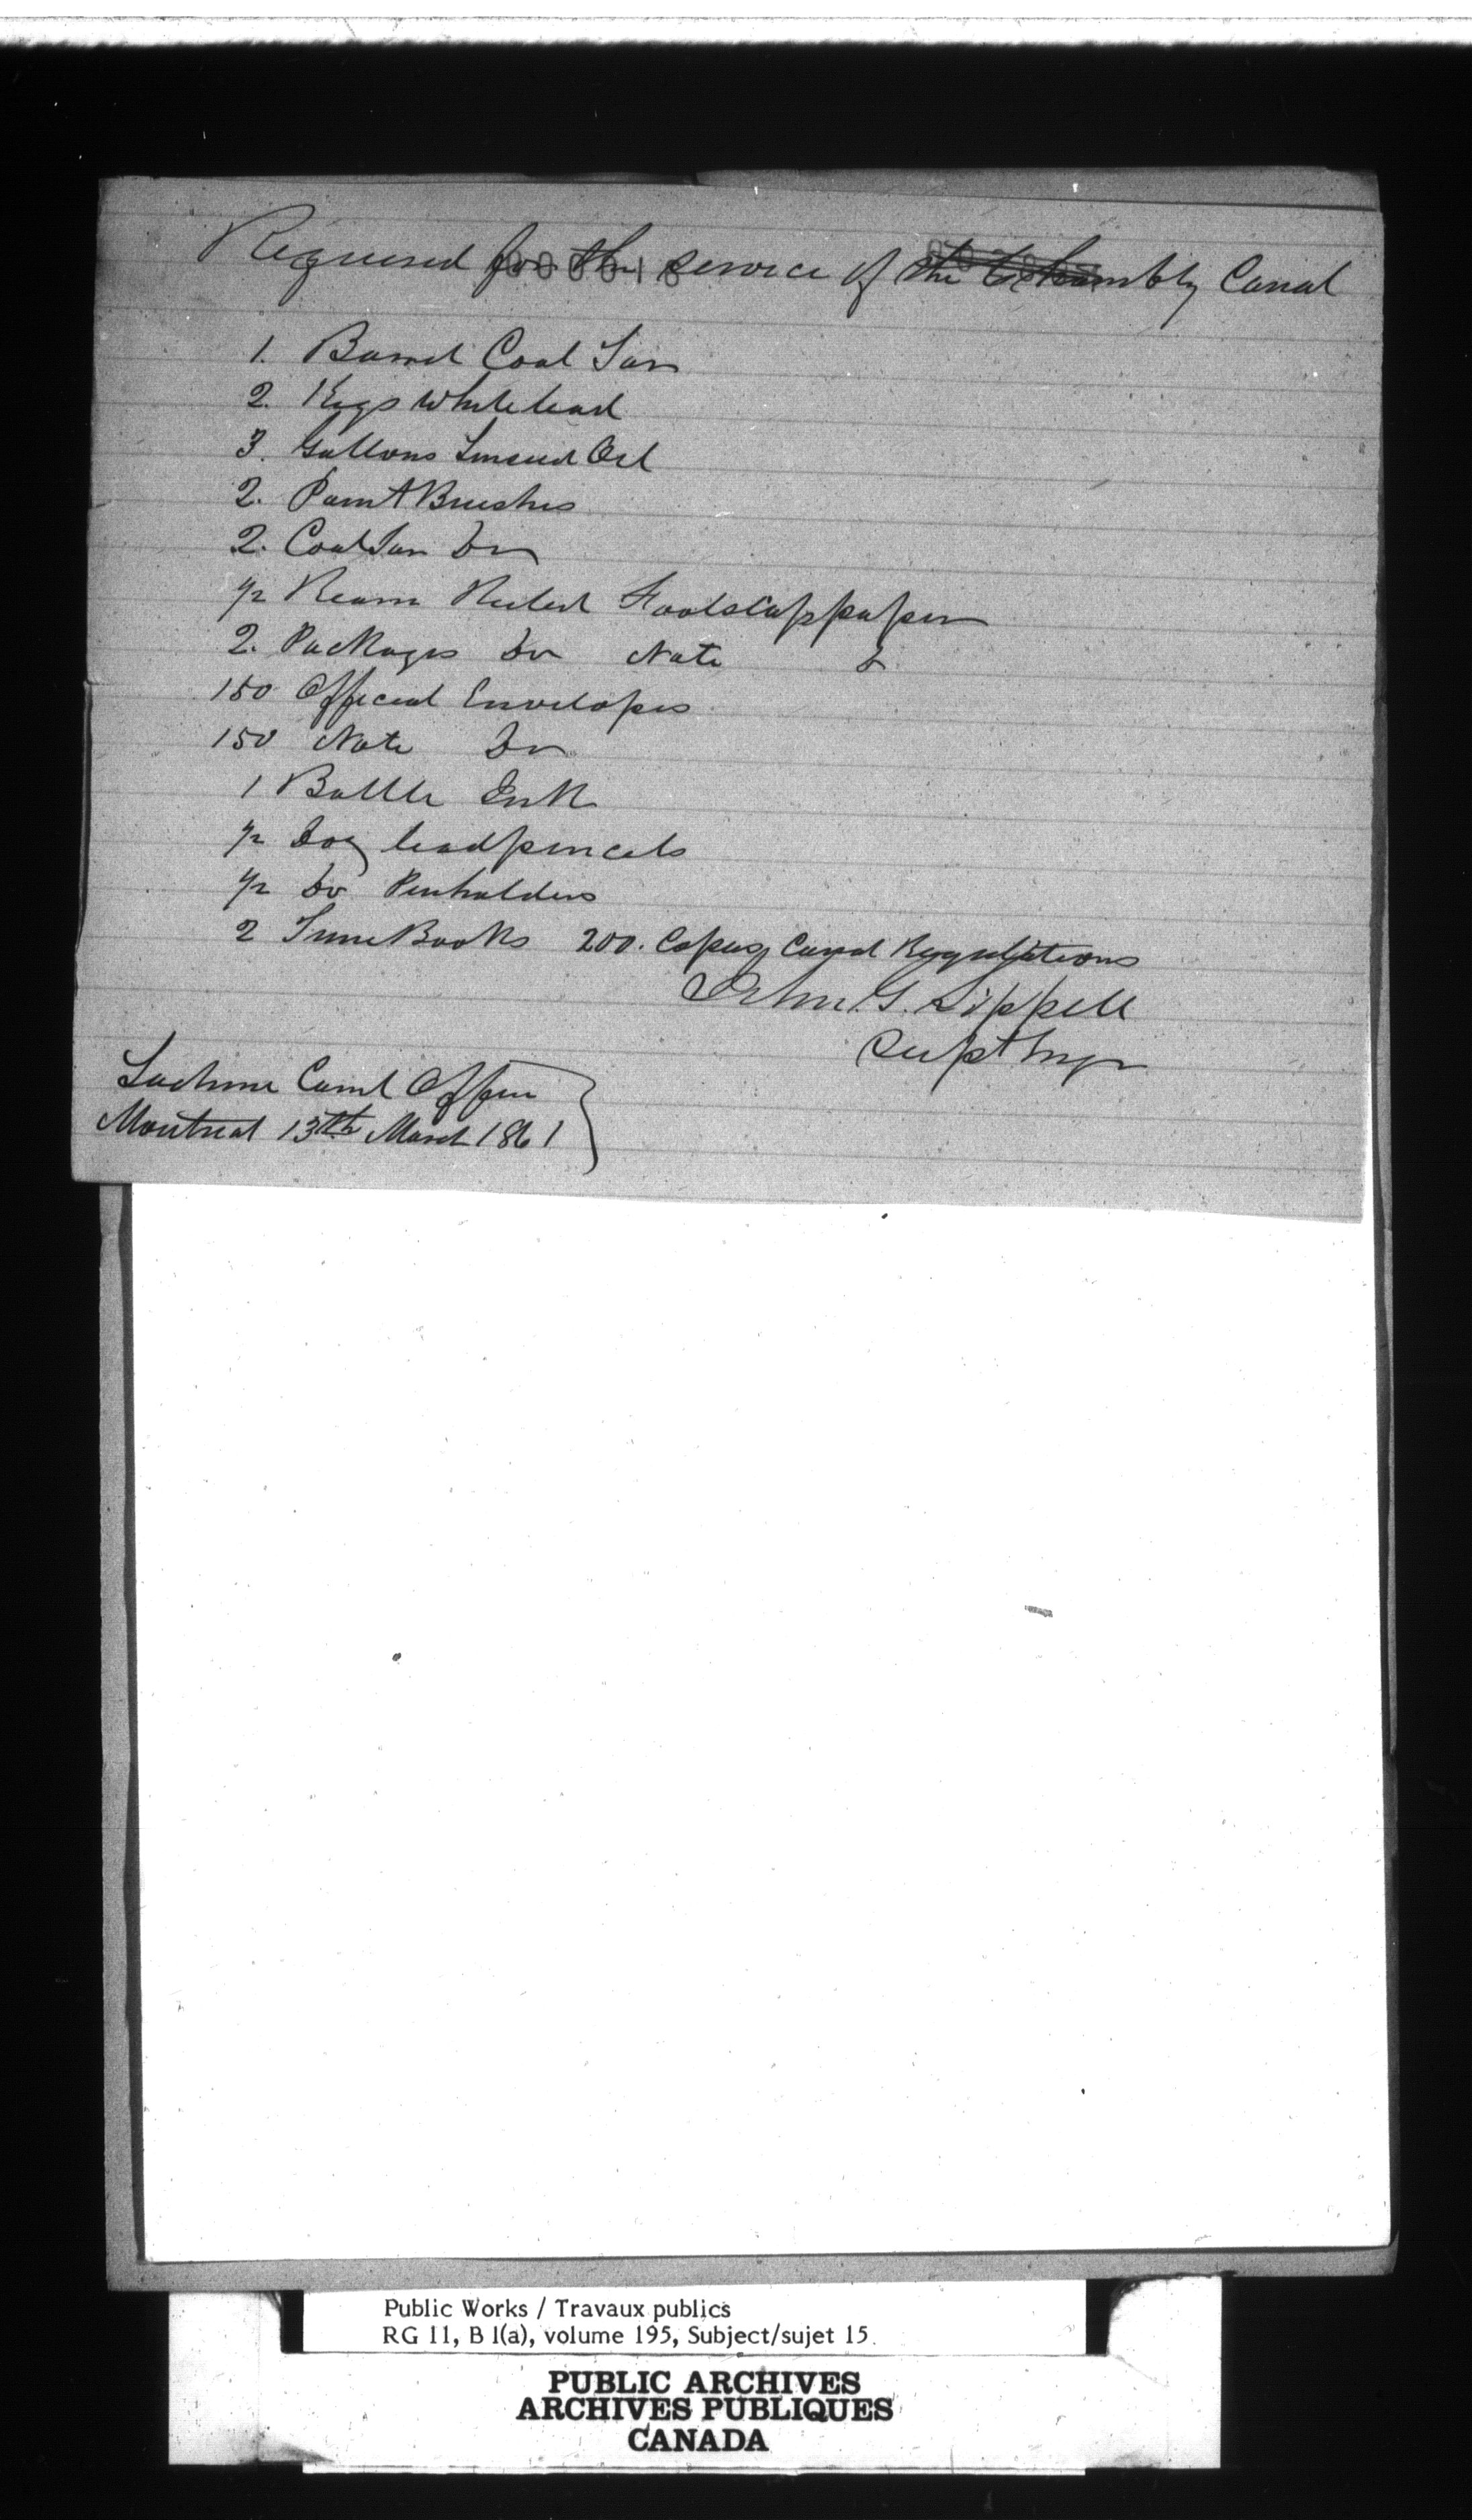 Required for the service of the Chambly Canal
1. Barrel Coal Tar
2. Kegs White lead
3. Gallons Linseed Oil
2. Paint Brushes
2. Coal Tar Do
1/2 Ream Ruled Foolscap paper
2. Packages Do Note Do
150 Official Envelopes
150 Note Do
1 Bottle Ink
1/2 Doz lead pencils
1/2 Do Penholders
2 Time Books 200. Copies Canal Regulations
John G. Sippell
Supt Engr
Lachine Canal Office
Montreal 13th March 1861
Public Works / Travaux publics
RG 11, B 1(a), volume 195, Subject/sujet 15
PUBLIC ARCHIVES
ARCHIVES PUBLIQUES
CANADA